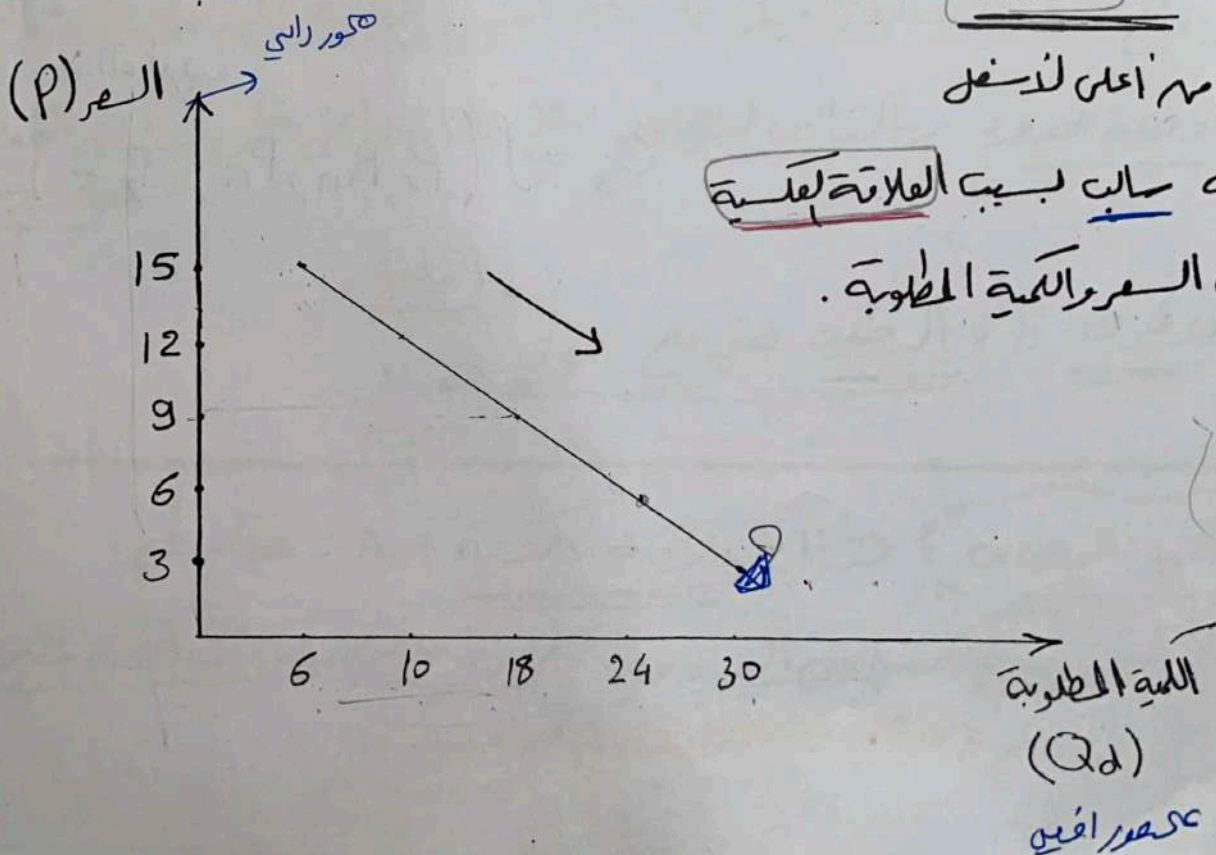 محور راسي
السعر (P)
من أعلى لأسفل
سالب بسبب العلاقة العكسية
السعر والكمية المطلوبة .
15
12
9
6
3
6 10 18 24 30
الكمية المطلوبة
(Qd)
محور افقي